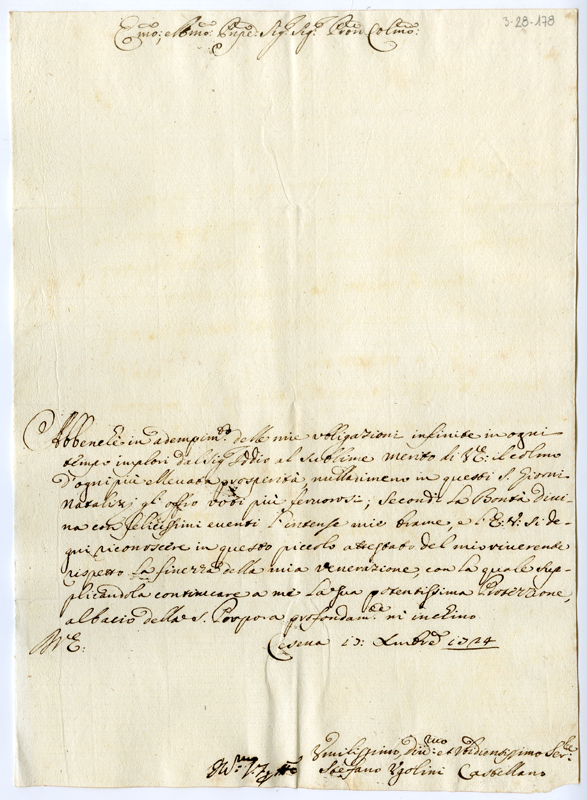 3-28-178
Em̃o; e Rm̃o: Pnpe. Sig: Sig: Pron Colm̃o:
Abbenche in adempim.to delle mie obligazioni infinite in ogni
tempo implori dal Sig: Iddio al sublime merito di V:E: il colmo
d'ogni più elleuata prosperità, nulladimeno in questi S. Giorni
Natalizj gli offro voti più feruorosi; Secondi la Bontà Diui
na con felicissimi euenti l'intense mie brame, e l'E:V: si de-
gni riconoscere in questo piccolo attestato del mio riuerente
rispetto la finezza della mia venerazione, con la quale sup-
plicandola continuare a me la sua potentissima Protezzione,
al bacio della S. Porpora profondam.te m'inchino
V:E:
Cesena Xmbre 1724
Vmilissimo, Diu.mo et Vbidientissimo Ser.re
Stefano Vgolini Castellano